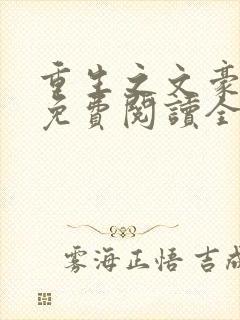 重生之文豪
免費閱讀全
雾海正悟 吉成